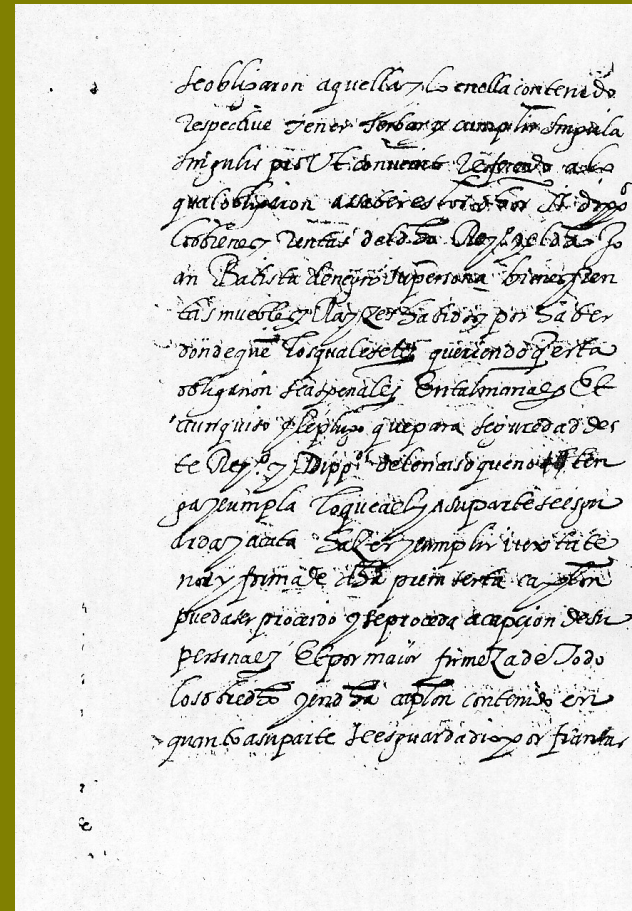 se obligaron aquella y lo enella contenido
Respective tener serbar y cumplir singula
singulis pro ut convenit Refiriendo a la
qual obligacion a saber es los dhos SS dipp.
los bienes y Rentas del dho Rey.º y el dho Jo
an Batista denegro su persona bienes y Ren
tas muebles y Rayzes habidos y por haber
donde que los quales etc queriendo q esta
obligacion sea spenal etc En tal manera etc Et
aun quiso y le plugo que para seguredad des
te Rey.º y Dipp.ºˢ de tenaiso que no ten
ga y cumpla lo que a el y a su parte se esgu
arda y acata hazer y cumplir iuxta te
nor y forma de dha preinserta capⁿ
pueda ser procedo y se proceda a capcion de su
persona etc Et por maior firmeza de Todo
lo sobredho y en dha caplon contenido en
quanto a su parte se esguarda dio por fianzas